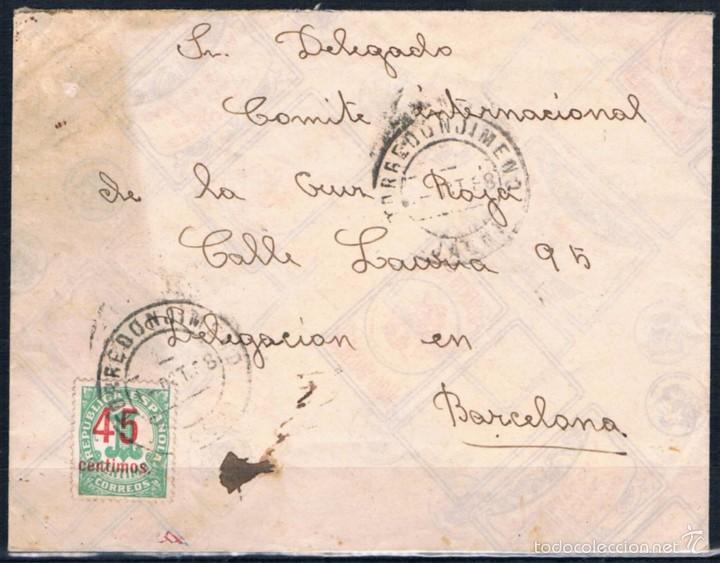 Sr. Delegado
Comite internacional
de la Cruz Roja
Calle Lauria 95
Delegacion en
Barcelona
TORREDONJIMENO
OCT. 38
TORREDONJIMENO
OCT. 38
REPUBLICA ESPAÑOLA
45
centimos
CORREOS
todocoleccion.net